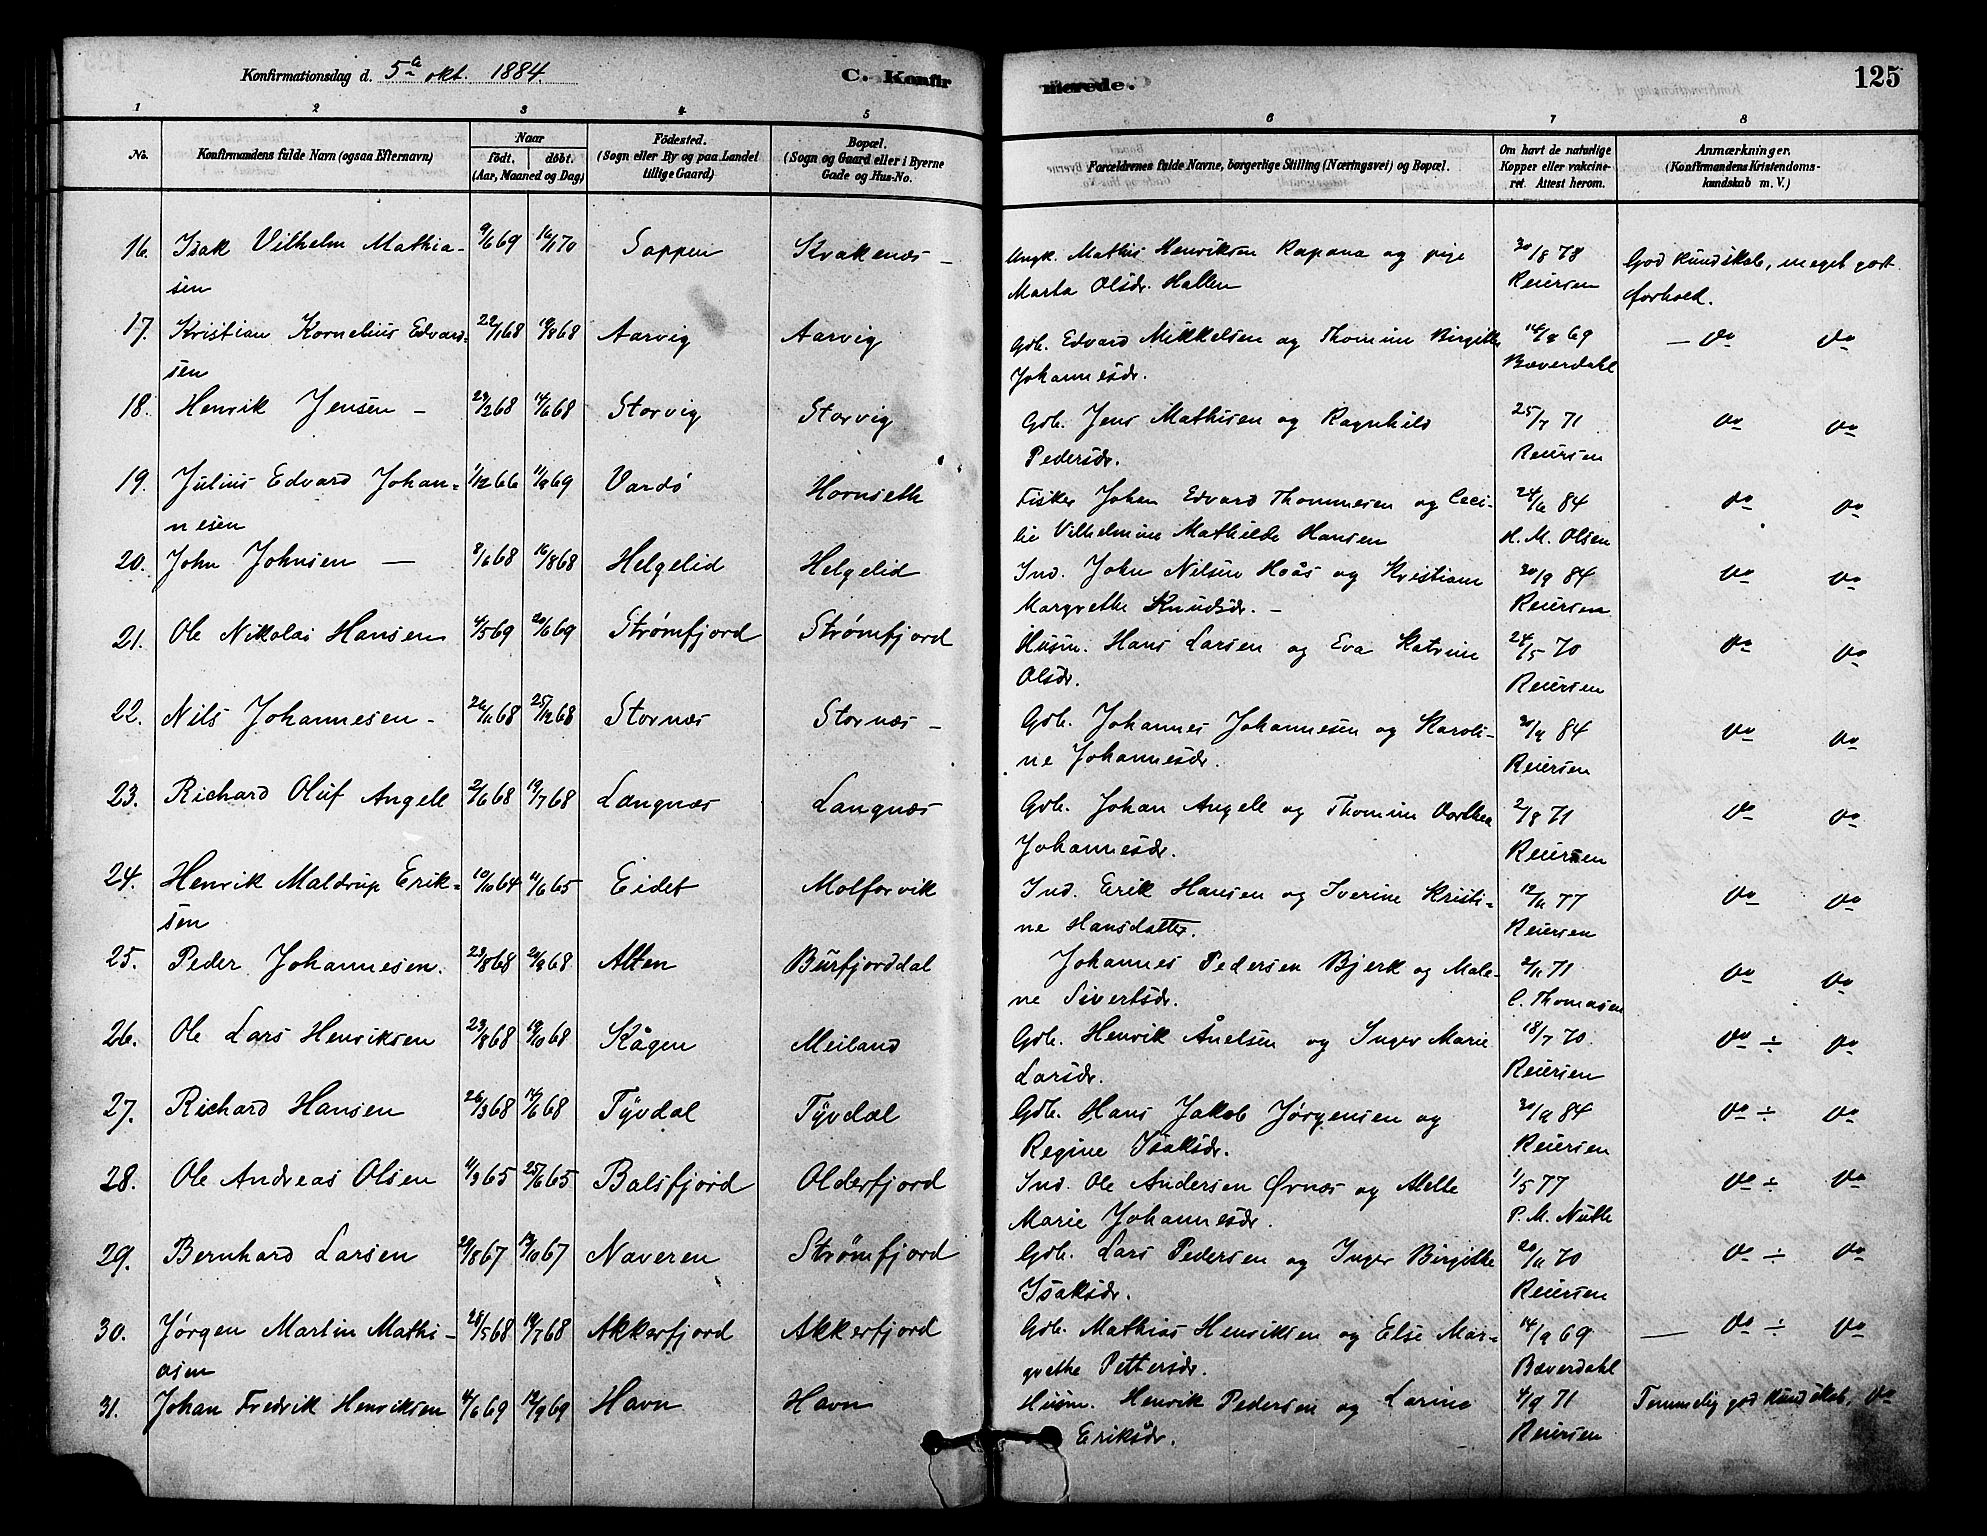 Konfirmationsdag d. 5te okt. 1884.
C. Konfirmerede.
125
1 2 3 4 5 6 7 8
No.
Konfirmandens fulde Navn (ogsaa Efternavn)
Naar
født. døbt.
(Aar, Maaned og Dag)
Fødested.
(Sogn eller By og paa Landet
tillige Gaard)
Bopæl.
(Sogn og Gaard eller i Byerne
Gade og Hus-No.
Forældrenes fulde Navne, borgerlige Stilling (Næringsvei) og Bopæl.
Om havt de naturlige
Kopper eller vakcine-
ret. Attest herom.
Anmærkninger.
(Konfirmandens Kristendoms-
kundskab m. V.)
16. Isak Vilhelm Mathia- 9/6 69 16/1 70 Sappen Kvakenæs – Ungk. Mathis Henriksen Rapana og pige 30/8 78 God kundskab, meget godt
sen Marta Olsdr. Hallen Reiersen forhold.
17. Kristian Kornelius Edvard- 22/1 68 19/8 68 Aarvig Aarvig Gdb. Edvard Mikkelsen og Thomine Birgitte 14/9 69 – do do
sen Johannesdr. Bæverdahl
18. Henrik Jensen – 29/2 68 14/6 68 Storvig Storvig Gdb. Jens Mathisen og Ragnhild 25/7 71 do do
Pedersdr. Reiersen
19. Julius Edvard Johan- 1/12 66 11/9 69 Vardö Hornseth Fisker Johan Edvard Thommesen og Ceci- 24/6 84 do do
nesen lie Vilhelmine Mathilde Hansen H. M. Olsen
20. John Johnsen – 8/6 68 16/8 68 Helgelid Helgelid Ind. John Nilsen Hoås og Kristiane 30/9 84 do do
Margrethe Knudsdr. – Reiersen
21. Ole Nikolai Hansen 4/5 69 20/6 69 Strømfjord Strømfjord Husm. Hans Larsen og Eva Katrine 24/5 70 do do
Olsdr. Reiersen
22. Nils Johannesen – 26/11 68 25/12 68 Stornæs Stornæs – Gdb. Johannes Johannesen og Karoli- 30/9 84 do do
ne Johannesdr. Reiersen
23. Richard Oluf Angell 2/6 68 19/7 68 Langnæs Langnæs Gdb. Johan Angell og Thomine Dorthea 2/8 71 do do
Johannesdr. Reiersen
24. Henrik Maldrup Erik- 10/10 64 11/6 65 Eidet Molforvik Ind. Erik Hansen og Iverine Kristi- 12/11 77 do do
sen ne Hansdatter. Reiersen
25. Peder Johannesen. 23/8 68 20/9 68 Alten Burfjorddal Johannes Pedersen Bjerk og Male- 2/11 71 do do
ne Sivertsdr. C. Thomasen
26. Ole Lars Henriksen 23/8 68 19/10 68 Kågen Meiland Gdb. Henrik Ånelsen og Inger Marie 18/7 70 do ÷ do
Larsdr. Reiersen
27. Richard Hansen 26/3 68 14/6 68 Tyvdal Tyvdal Gdb. Hans Jakob Jørgensen og 30/9 84 do ÷ do
Regine Isaksdr. Reiersen
28. Ole Andreas Olsen 11/3 65 25/6 65 Balsfjord Olderfjord Ind. Ole Andersen Ørnæs og Mette 1/5 77 do ÷ do
Marie Johannesdr. P. M. Nuth
29. Bernhard Larsen 29/8 67 13/10 67 Naveren Strømfjord Gdb. Lars Pedersen og Inger Birgitte 20/11 70 do ÷ do
Isaksdr. Reiersen
30. Jørgen Martin Mathi- 28/5 68 19/7 68 Akkerfjord Akkerfjord Gdb. Mathias Henriksen og Else Mar- 14/9 69 – do ÷ do
asen grethe Pettersdr. Bæverdahl
31. Johan Fredrik Henriksen 4/6 69 12/9 69 Havn Havn Husm. Henrik Pedersen og Larine 4/9 71 Temmelig god kundskab, do
Eriksdr. Reiersen